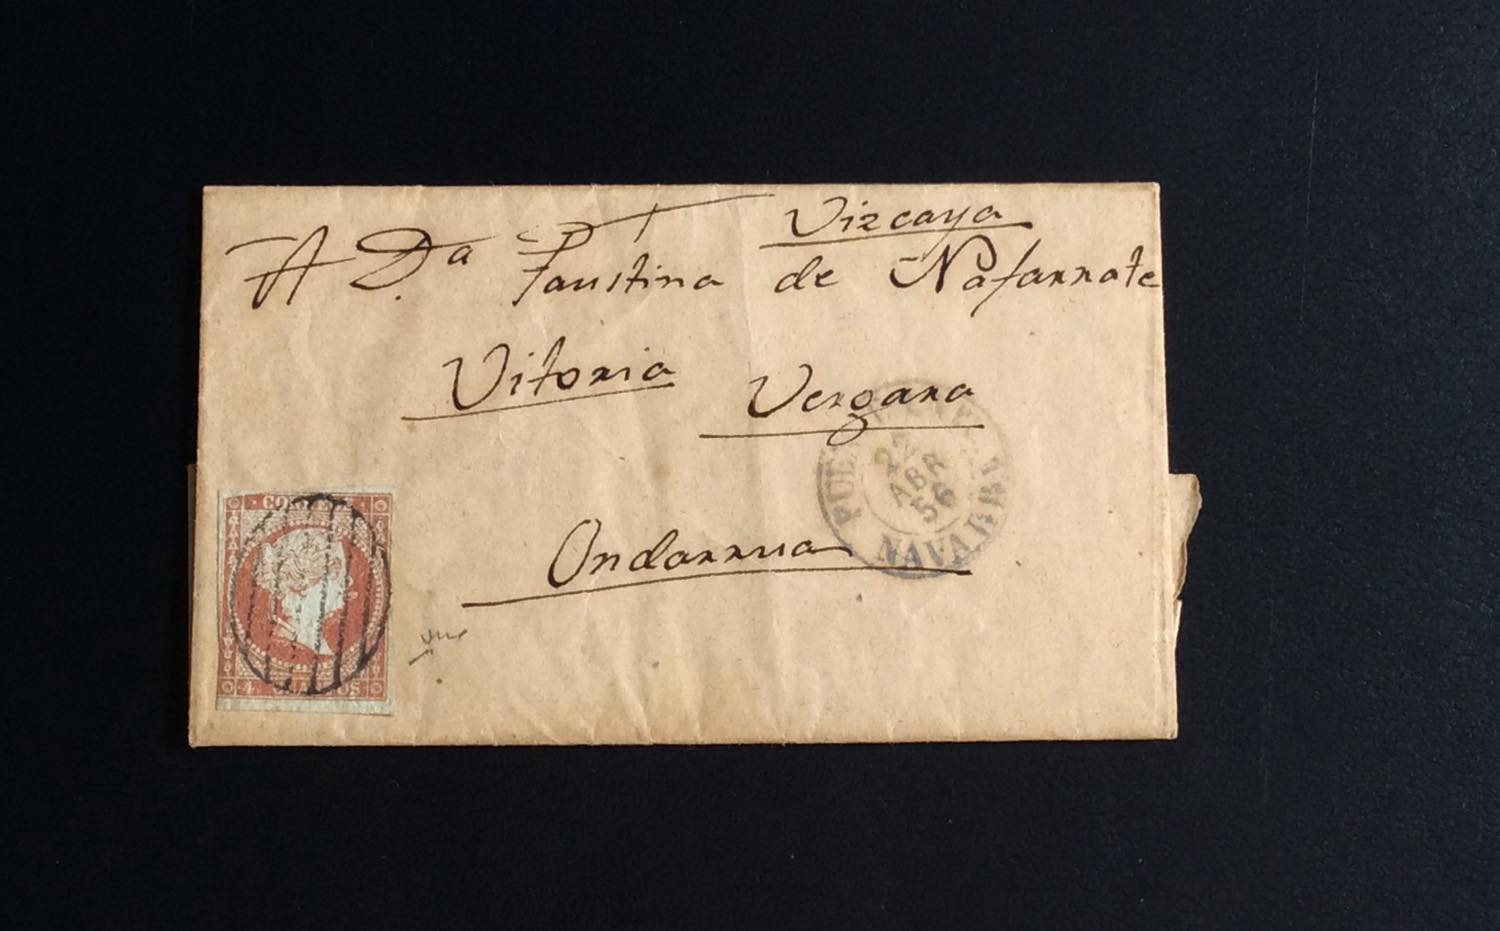 Vizcaya
A D.ª Faustina de Nafarrate
Vitoria Vergara
Ondarrua
22
ABR
56
NAVARRA
4 CUARTOS